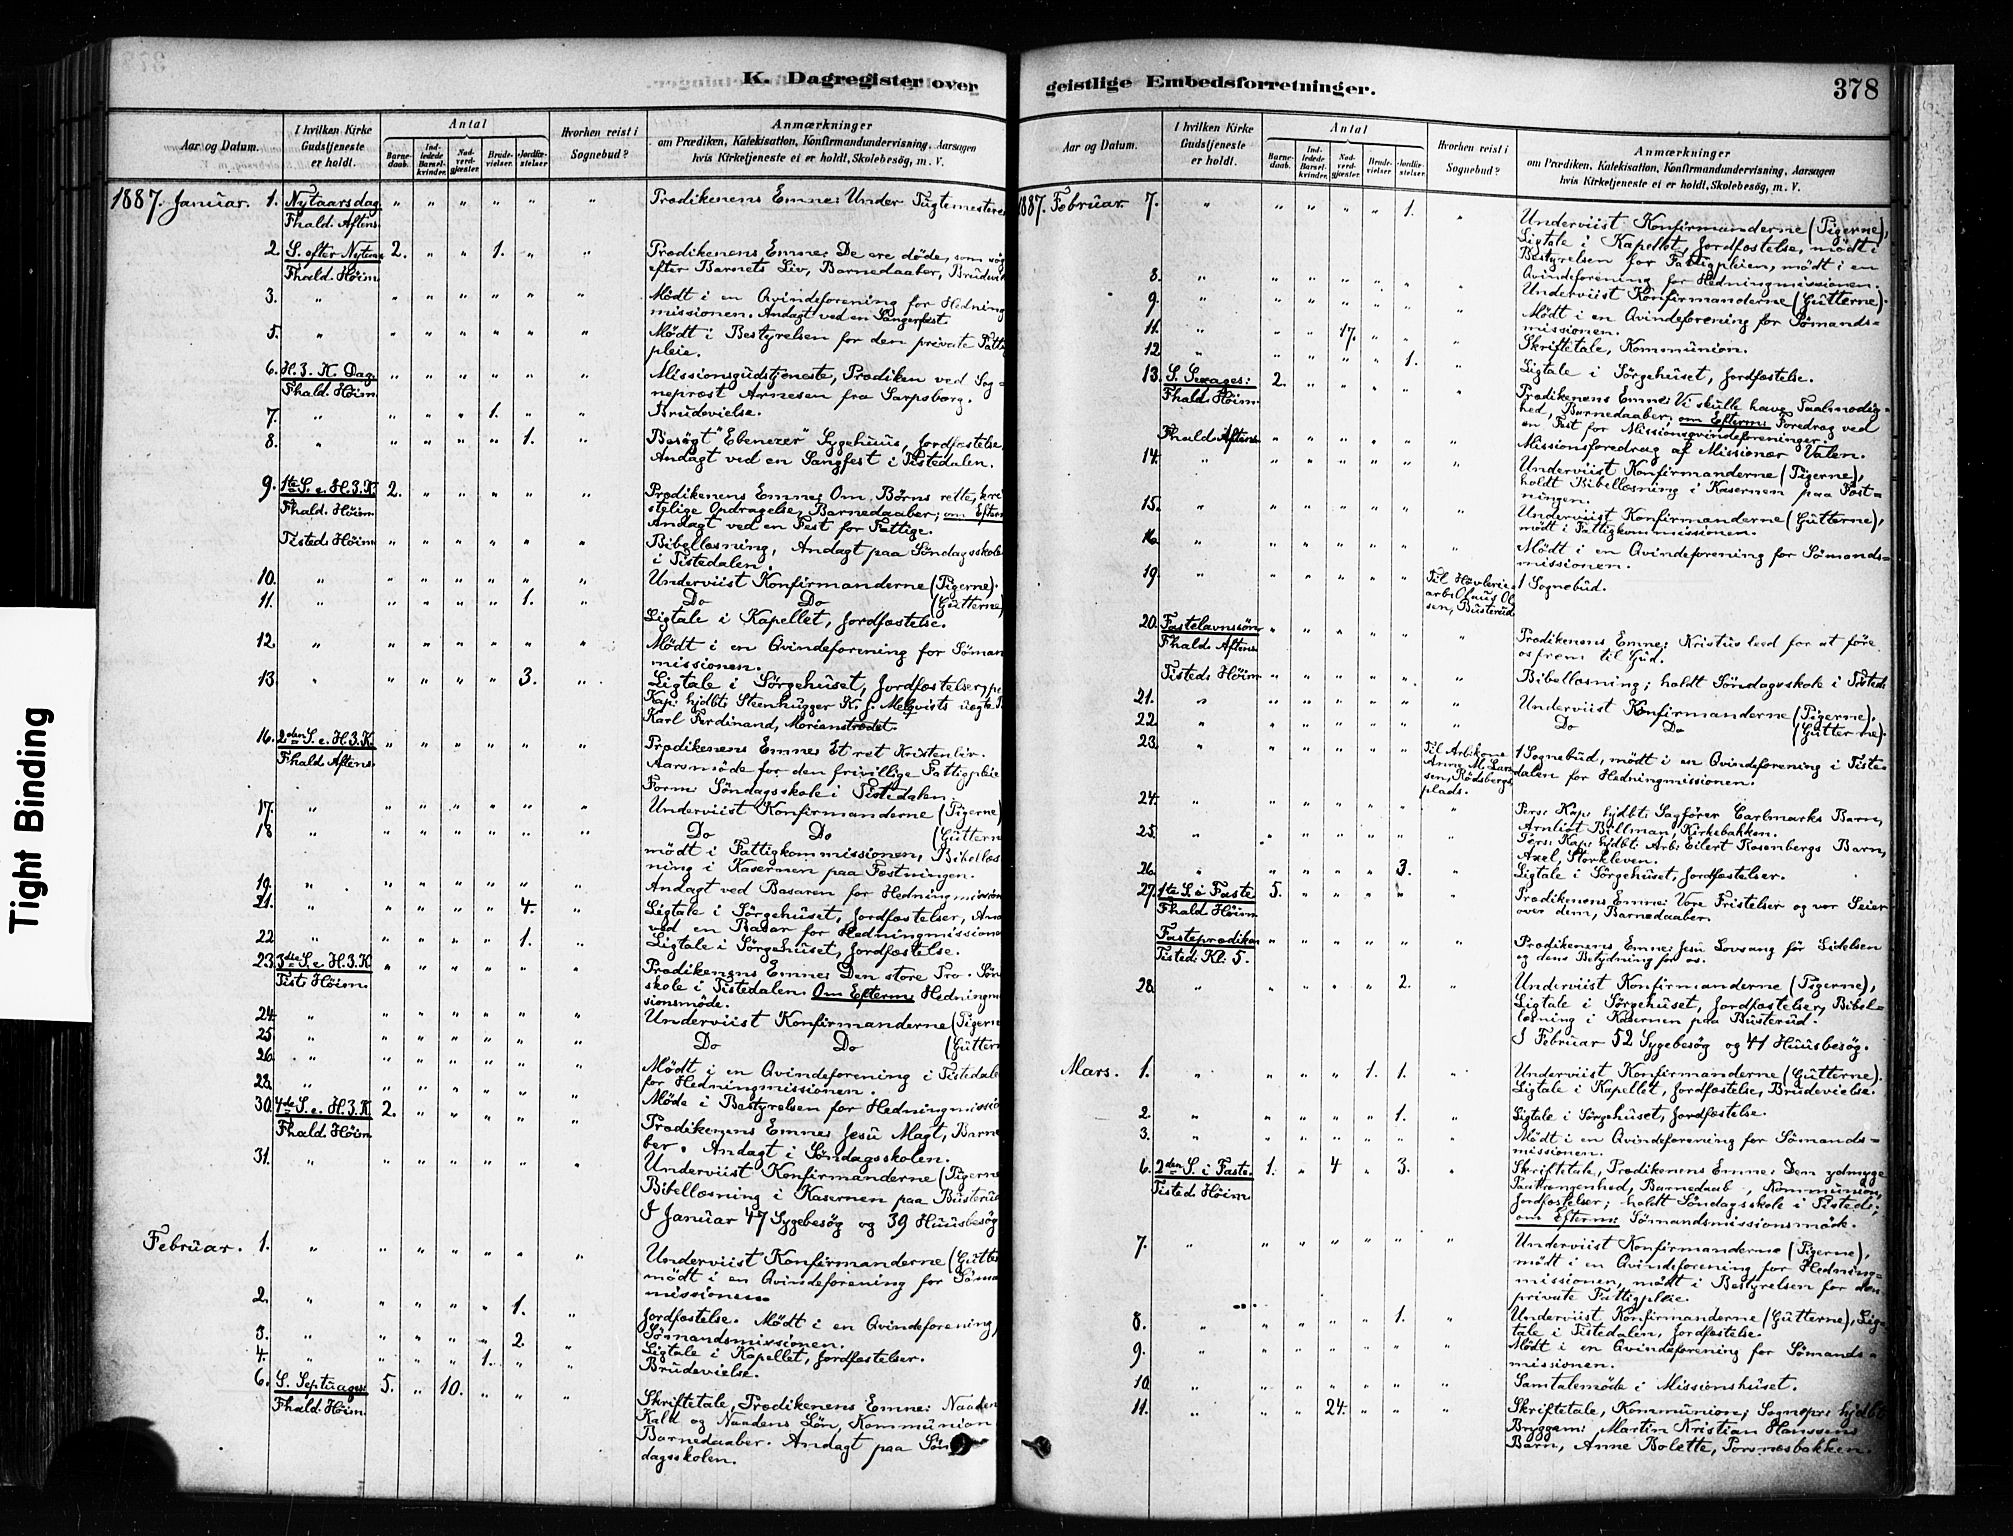 K. Dagregister over
Aar og Datum.
I hvilken Kirke Gudstjeneste er holdt.
Antal
Barnedaab.
Indledede Barselkvinder.
Nadverdgjæster
Brudevielser.
Jordfæstelser
Hvorhen reist i Sognebud?
Anmærkninger
om Prædiken, Katekisation, Konfirmandundervisning, Aarsagen
hvis Kirketjeneste ei er holdt, Skolebesøg, m. V.
1887. Januar. 1. Nytaarsdag " " " " " " Prædikenens Emne: Under Tugtemesteren
Fhald. Aftens.
2. S. efter Nytaar 2. " " 1. " " Prædikenens Emne: De ere døde, som
Fhald. Høim. efter Barnets Liv, Barnedaaber,
3. " " " " " " " Mødt i en Qvindeforening for Hedning
missionen. Andagt ved en Sangerfest.
5. " " " " " " " Mødt i Bestyrelsen for den private Fattig
pleie.
6. H. 3. K. Dag. " " " " " " Missionsgudstjeneste, Prædiken ved Sog-
Fhald. Høim. nepræst Arnesen fra Sarpsborg.
7. " " " " 1. " " Brudevielse.
8. " " " " " 1. " Besøgt "Ebenezer" Sygehuus, Jordfæstelse,
Andagt ved en Sangfest i Tistedalen.
9. 1ste S. e. H. 3. K. 2. " " " " " Prædikenens Emne: Om Børns rette, kri
Fhald. Høim. stelige Opdragelse, Barnedaaber; om Efterm
Andagt ved en Fest for Fattige.
Tisted. Høim " " " " " " Bibellæsning, Andagt paa Søndagsskole
i Tistedalen.
10. " " " " " " " Underviist Konfirmanderne (Pigerne).
11. " " " " " 1. " Do Do (Gutterne)
Ligtale i Kapellet, Jordfæstelse.
12. " " " " " " " Mødt i en Qvindeforening for Søman
missionen.
13. " " " " " 3. " Ligtale i Sørgehuset, Jordfæstelser,
Kap: hjdbt: Steenhugger K. J. Melqvists uægte
Karl Ferdinand, Marienstrædet.
16. 2den S. e. H. 3. K. " " " " " " Prædikenens Emne: Et ret Kristenliv.
Fhald. Aftens. Aarsmøde for den frivillige Fattigpleie
Form: Søndagsskole i Tistedalen.
17. " " " " " " " Underviist Konfirmanderne (Pigerne)
18. " " " " " " " Do Do (Gutterne
mødt i Fattigkommissionen, Bibellæs
ning i Kasernen paa Fæstningen.
19. " " " " " " " Andagt ved Basaren for Hedningmission
21. " " " " " 4. " Ligtale i Sørgehuset, Jordfæstelser,
ved en Basar for Hedningmission
22. " " " " " 1. " Ligtale i Sørgehuset, Jordfæstelse.
23. 3die S. e. H. 3. K " " " " " " Prædikenens Emne: Den store Tro. Søn
Tist. Høim. skole i Tistedalen. Om Efterm: Hedningm
sionsmøde.
24. " " " " " " " Underviist Konfirmanderne (Pigerne
25. " " " " " " " Do Do (Guttern
26. " " " " " " " Mødt i en Qvindeforening i Tistedale
for Hedningmissionen.
28. " " " " " " " Møde i Bestyrelsen for Hedningmissio
30. 4de S. e. H. 3. K. 2. " " " " " Prædikenens Emne: Jesu Magt, Barne
Fhald. Høim. ber. Andagt i Søndagsskolen.
31. " " " " " " " Underviist Konfirmanderne (Pigerne
Bibellæsning i Kasernen paa Busterud
I Januar 47 Sygebesøg og 39 Huusbesøg
Februar. 1. " " " " " " " Underviist Konfirmanderne (Gutte
mødt i en Qvindeforening for Søma
missionen.
2. " " " " " 1. " Jordfæstelse. Mødt i en Qvindeforening
Sømandsmissionen.
3. " " " " " 2. " Ligtale i Kapellet, Jordfæstelser.
4. " " " " 1. " " Brudevielse.
6. S. Septuages: 5. " 10. " " " Skriftetale, Prædikenens Emne: Naaden
Fhald. Høim. Kald og Naadens Løn, Kommunion
Barnedaaber. Andagt paa Søn
dagsskolen.
geistlige Embedsforretninger.
378
Aar og Datum.
I hvilken Kirke Gudstjeneste er holdt.
Antal
Barnedaab.
Indledede Barselkvinder.
Nadverdgjæster
Brudevielser
Jordfæstelser.
Hvorhen reist i Sognebud?
Anmærkninger
om Prædiken, Katekisation, Konfirmandundervisning, Aarsagen
hvis Kirketjeneste ei er holdt, Skolebesøg, m. V.
1887. Februar. 7. " " " " " 1. " Underviist Konfirmanderne (Pigerne),
Ligtale i Kapellet, Jordfæstelse, mødt i
Bestyrelsen for Fattigpleien, mødt i en
Qvindeforening for Hedningmissionen.
8. " " " " " " " Underviist Konfirmanderne (Gutterne).
9. " " " " " " " Mødt i en Qvindeforening for Sømands-
missionen.
11. " " " 17. " " " Skriftetale, Kommunion.
12. " " " " " 1. " Ligtale i Sørgehuset, Jordfæstelse.
13. S. Sexages: 2. " " " " " Prædikenens Emne: Vi skulle have Taalmodig-
Fhald. Høim. hed, Barnedaaber, om Efterm: Foredrag ved
en Fest for Missionsqvindeforeninger.
Fhald. Aftens " " " " " " Missionsforedrag af Missionær Valen.
14. " " " " " " " Underviist Konfirmanderne (Pigerne),
holdt Bibellæsning i Kasernen paa Fæst-
ningen.
15. " " " " " " " Underviist Konfirmanderne (Gutterne),
mødt i Fattigkommissionen.
16. " " " " " " " Mødt i en Qvindeforening for Sømands-
missionen.
19. " " " " " " Til Høvleri- 1 Sognebud.
arb: Olaus Ol
sen, Busterud
20. Fastelavnssøn " " " " " " Prædikenens Emne: Kristus leed for at føre
Fhald. Aftens os frem til Gud.
Tisted. Høim " " " " " " Bibellæsning; holdt Søndagsskole i Tisted:
21. " " " " " " " Underviist Konfirmanderne (Pigerne).
22. " " " " " " " Do Do (Gutterne).
23. " " " " " " Til Arb:kone 1 Sognebud, mødt i en Qvindeforening i Tiste-
Anne M. Lar dalen for Hedningmissionen.
sen, Rødsbergs
plads.
24. " " " " " " " Pers: Kap: hjdbt: Sagfører Carlmarks Barn,
Arnliot Billman, Kirkebakken.
25. " " " " " " " Pers: Kap: hjdbt: Arb: Eilert Rosenbergs Barn,
Axel, Storkleven.
26. " " " " " 3. " Ligtale i Sørgehuset, Jordfæstelser.
27. 1ste S. i Faste 5. " " " " " Prædikenens Emne: Vore Fristelser og vor Seier
Fhald. Høim over dem, Barnedaaber.
Fasteprædiken " " " " " " Prædikenens Emne: Jesu Lovsang før Lidelsen
Tisted: Kl: 5. og dens Betydning for os.
28. " " " " " 2. " Underviist Konfirmanderne (Pigerne),
Ligtale i Sørgehuset, Jordfæstelser, Bibel-
læsning i Kasernen paa Busterud.
I Februar 52 Sygebesøg og 41 Huusbesøg.
Mars. 1. " " " " 1. 1. " Underviist Konfirmanderne (Gutterne).
Ligtale i Kapellet, Jordfæstelse, Brudevielse.
2. " " " " " 1. " Ligtale i Sørgehuset, Jordfæstelse.
3. " " " " " " " Mødt i en Qvindeforening for Sømands-
missionen.
6. 2den S. i Faste. 1. " 4 " 3. " Skriftetale, Prædikenens Emne: Den ydmyge
Tisted. Høim Paatrængenhed, Barnedaab, Kommunion,
Jordfæstelser; holdt Søndagsskole i Tisted:;
om Efterm: Sømandsmissionsmøde.
7. " " " " " " " Underviist Konfirmanderne (Pigerne),
mødt i en Qvindeforening for Hedning-
missionen, mødt i Bestyrelsen for den
private Fattigpleie.
8. " " " " " 1. " Underviist Konfirmanderne (Gutterne), Lig-
tale i Tistedalen, Jordfæstelse.
9. " " " " " " " Mødt i en Qvindeforening for Sømands-
missionen.
10. " " " " " " " Samtalemøde i Missionshuset.
11. " " " 24. " " " Skriftetale, Kommunion; Sognepr: hjdbt
Bryggem: Martin Kristian Hanssens
Barn, Anne Bolette, Porsnæsbakken.
Tight Binding